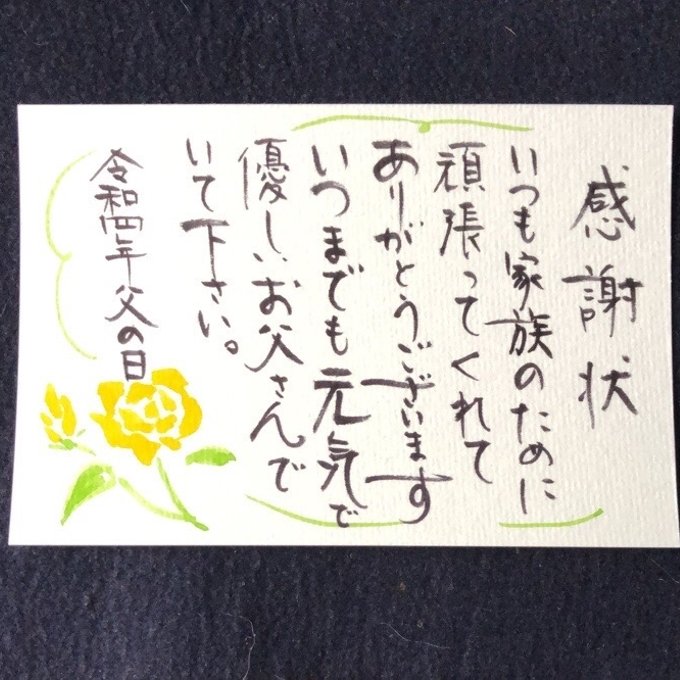 感謝状
いつも家族のために
頑張ってくれて
ありがとうございます
いつまでも元気で
優しいお父さんで
いて下さい。
令和四年父の日